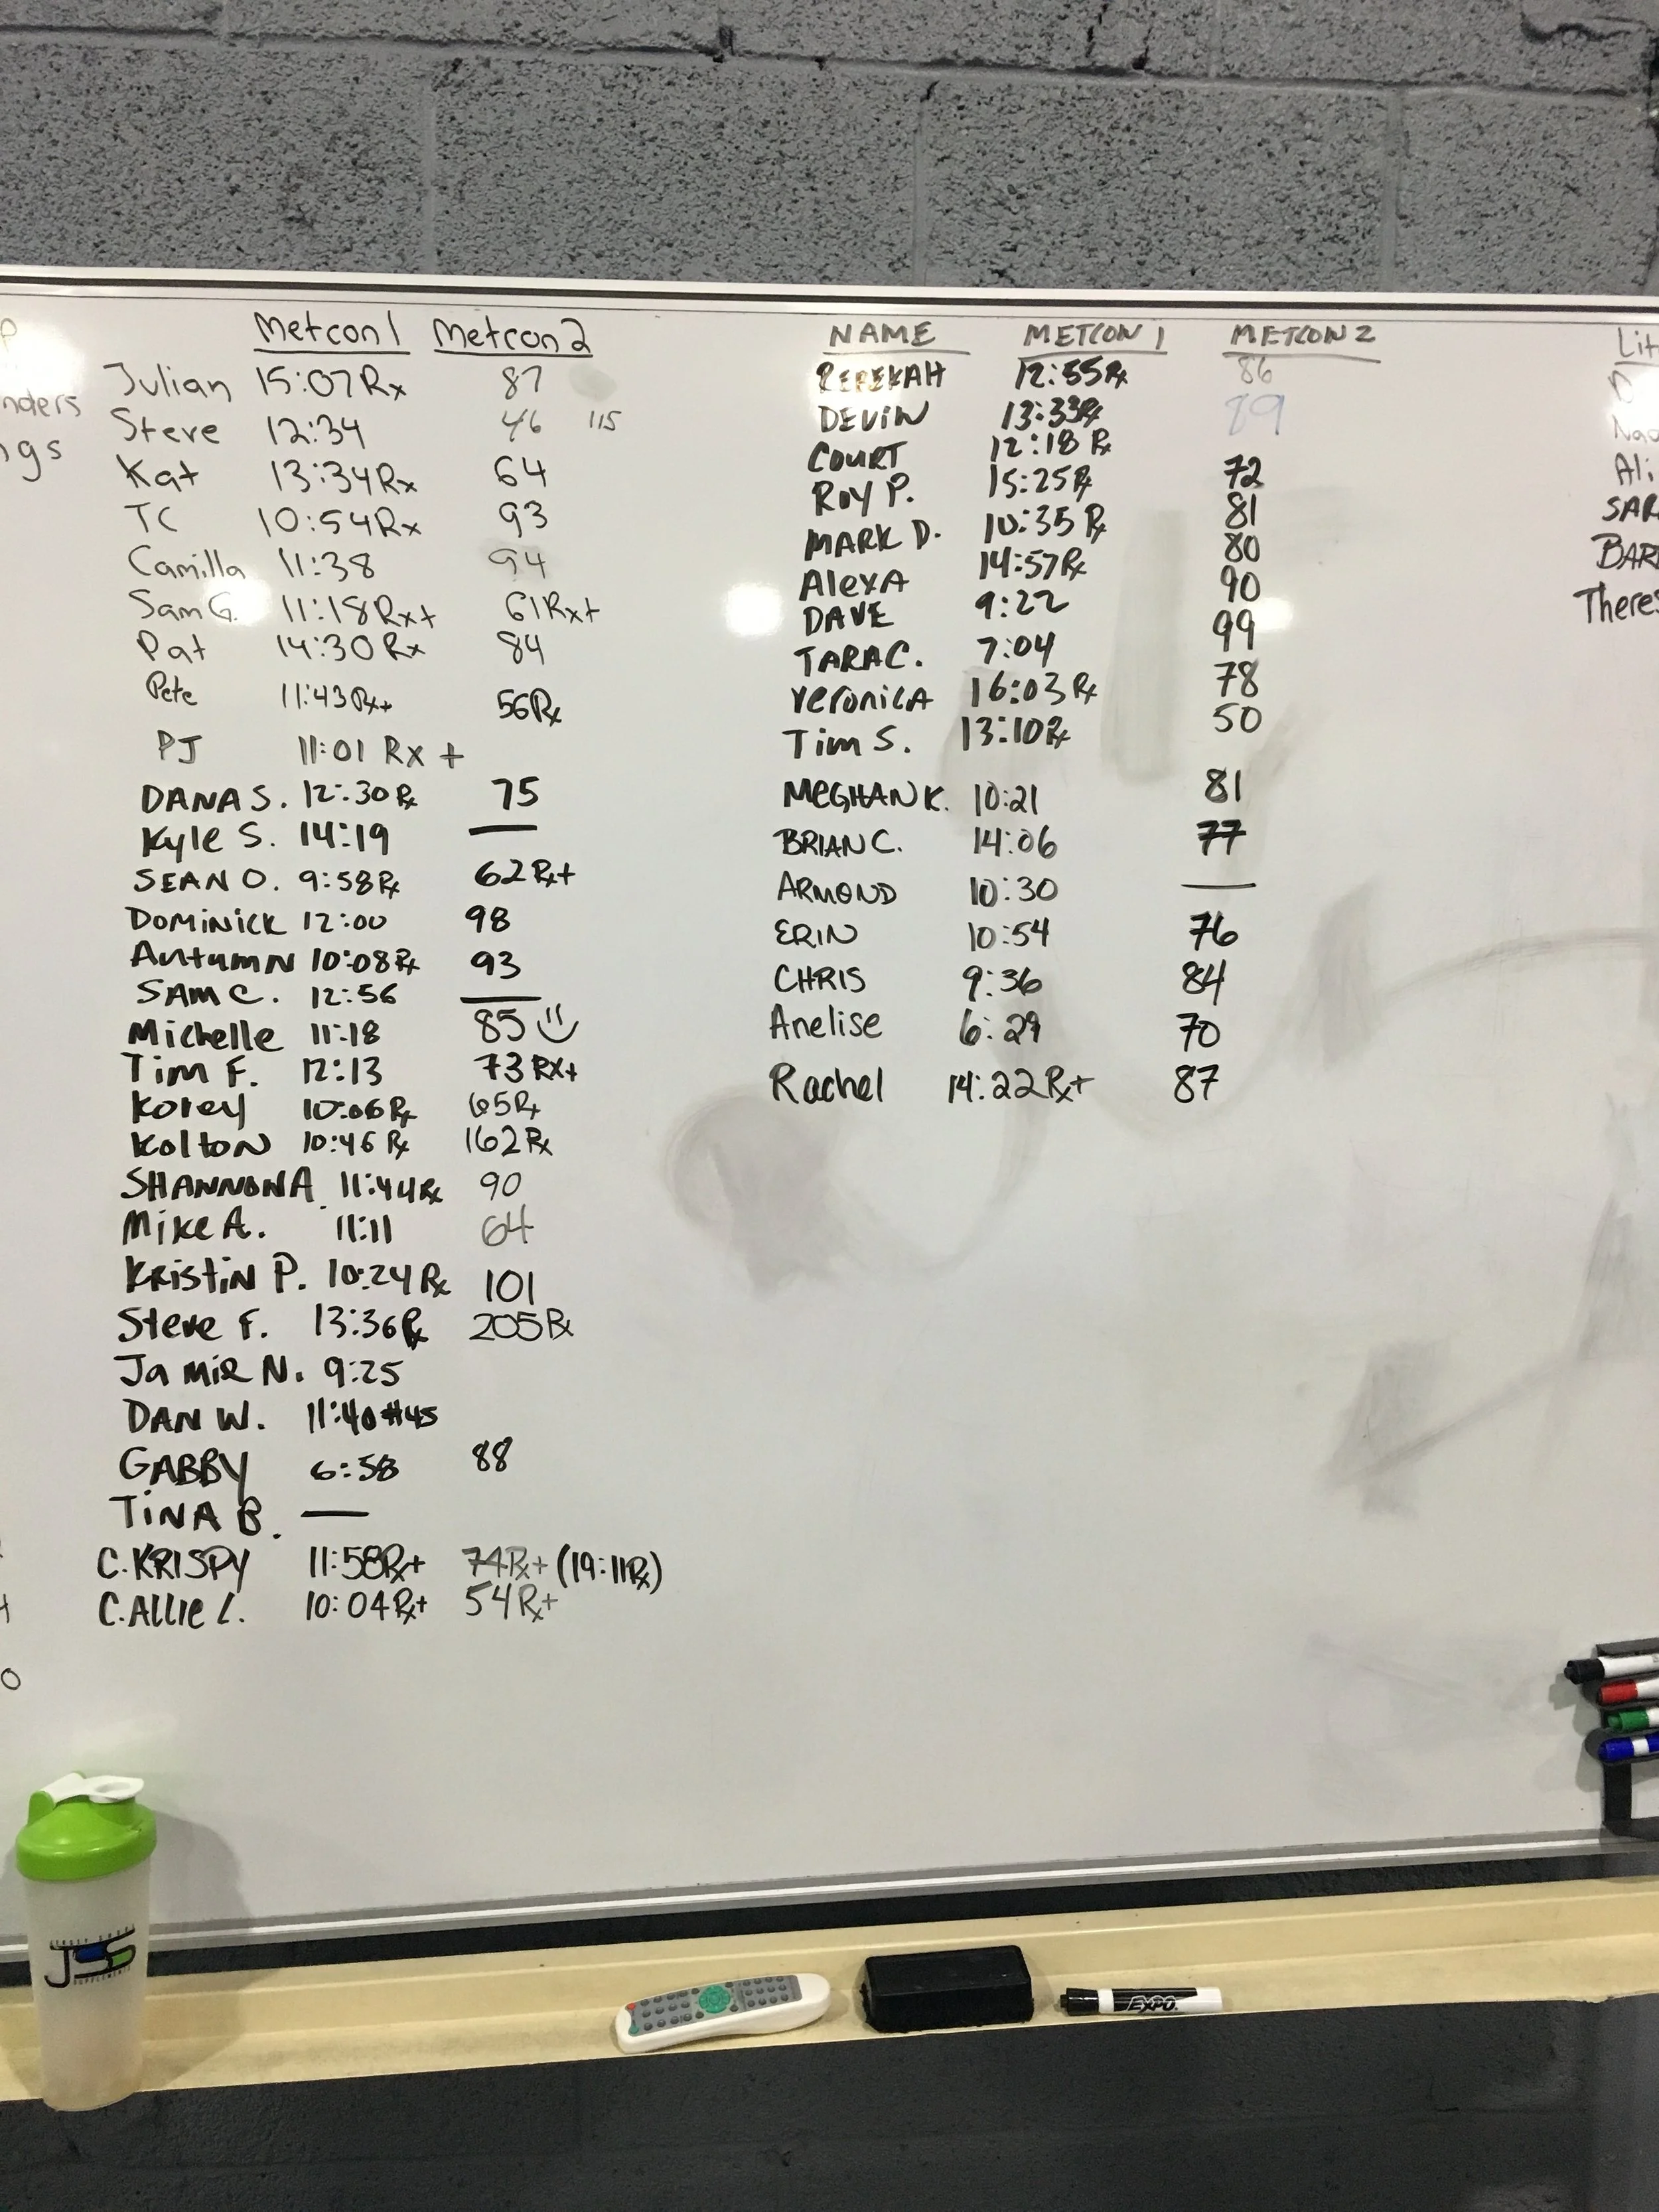 Metcon 1 Metcon 2
Julian 15:07 Rx 87
Steve 12:34 46 115
Kat 13:34 Rx 64
TC 10:54 Rx 93
Camilla 11:38 94
Sam G. 11:18 Rx+ 61 Rx+
Pat 14:30 Rx 84
Pete 11:43 Rx+ 56 Rx
PJ 11:01 Rx +
DANA S. 12:30 Rx 75
Kyle S. 14:19 —
SEAN O. 9:58 Rx 62 Rx+
Dominick 12:00 98
Autumn 10:08 Rx 93
SAM C. 12:56 —
Michelle 11:18 85
Tim F. 12:13 73 RX+
Korey 10:06 Rx 65 Rx
Kolton 10:46 Rx 162 Rx
SHANNON A. 11:44 Rx 90
Mike A. 11:11 64
KRistiN P. 10:24 Rx 101
Steve F. 13:36 Rx 205 Rx
JamiR N. 9:25
DAN W. 11:40 #45
GABBY 6:58 88
TiNA B. —
C. KRISPY 11:58 Rx+ 74 Rx+ (19:11 Rx)
C. Allie L. 10:04 Rx+ 54 Rx+
NAME METCON 1 METCON 2
REBEKAH 12:55 Rx 86
DEViN 13:33 Rx 89
COURT 12:18 Rx
Roy P. 15:25 Rx 72
MARK D. 10:35 Rx 81
AlexA 14:57 Rx 80
DAVE 9:22 90
TARA C. 7:04 99
VeroniCA 16:03 Rx 78
Tim S. 13:10 Rx 50
MeGHAN K. 10:21 81
BRIAN C. 14:06 77
ARMOND 10:30 —
ERIN 10:54 76
CHRIS 9:36 84
Anelise 6:29 70
Rachel 14:22 Rx+ 87
nders
gs
Lit
Ali
SAR
BAR
Theres
JSS
EXPO